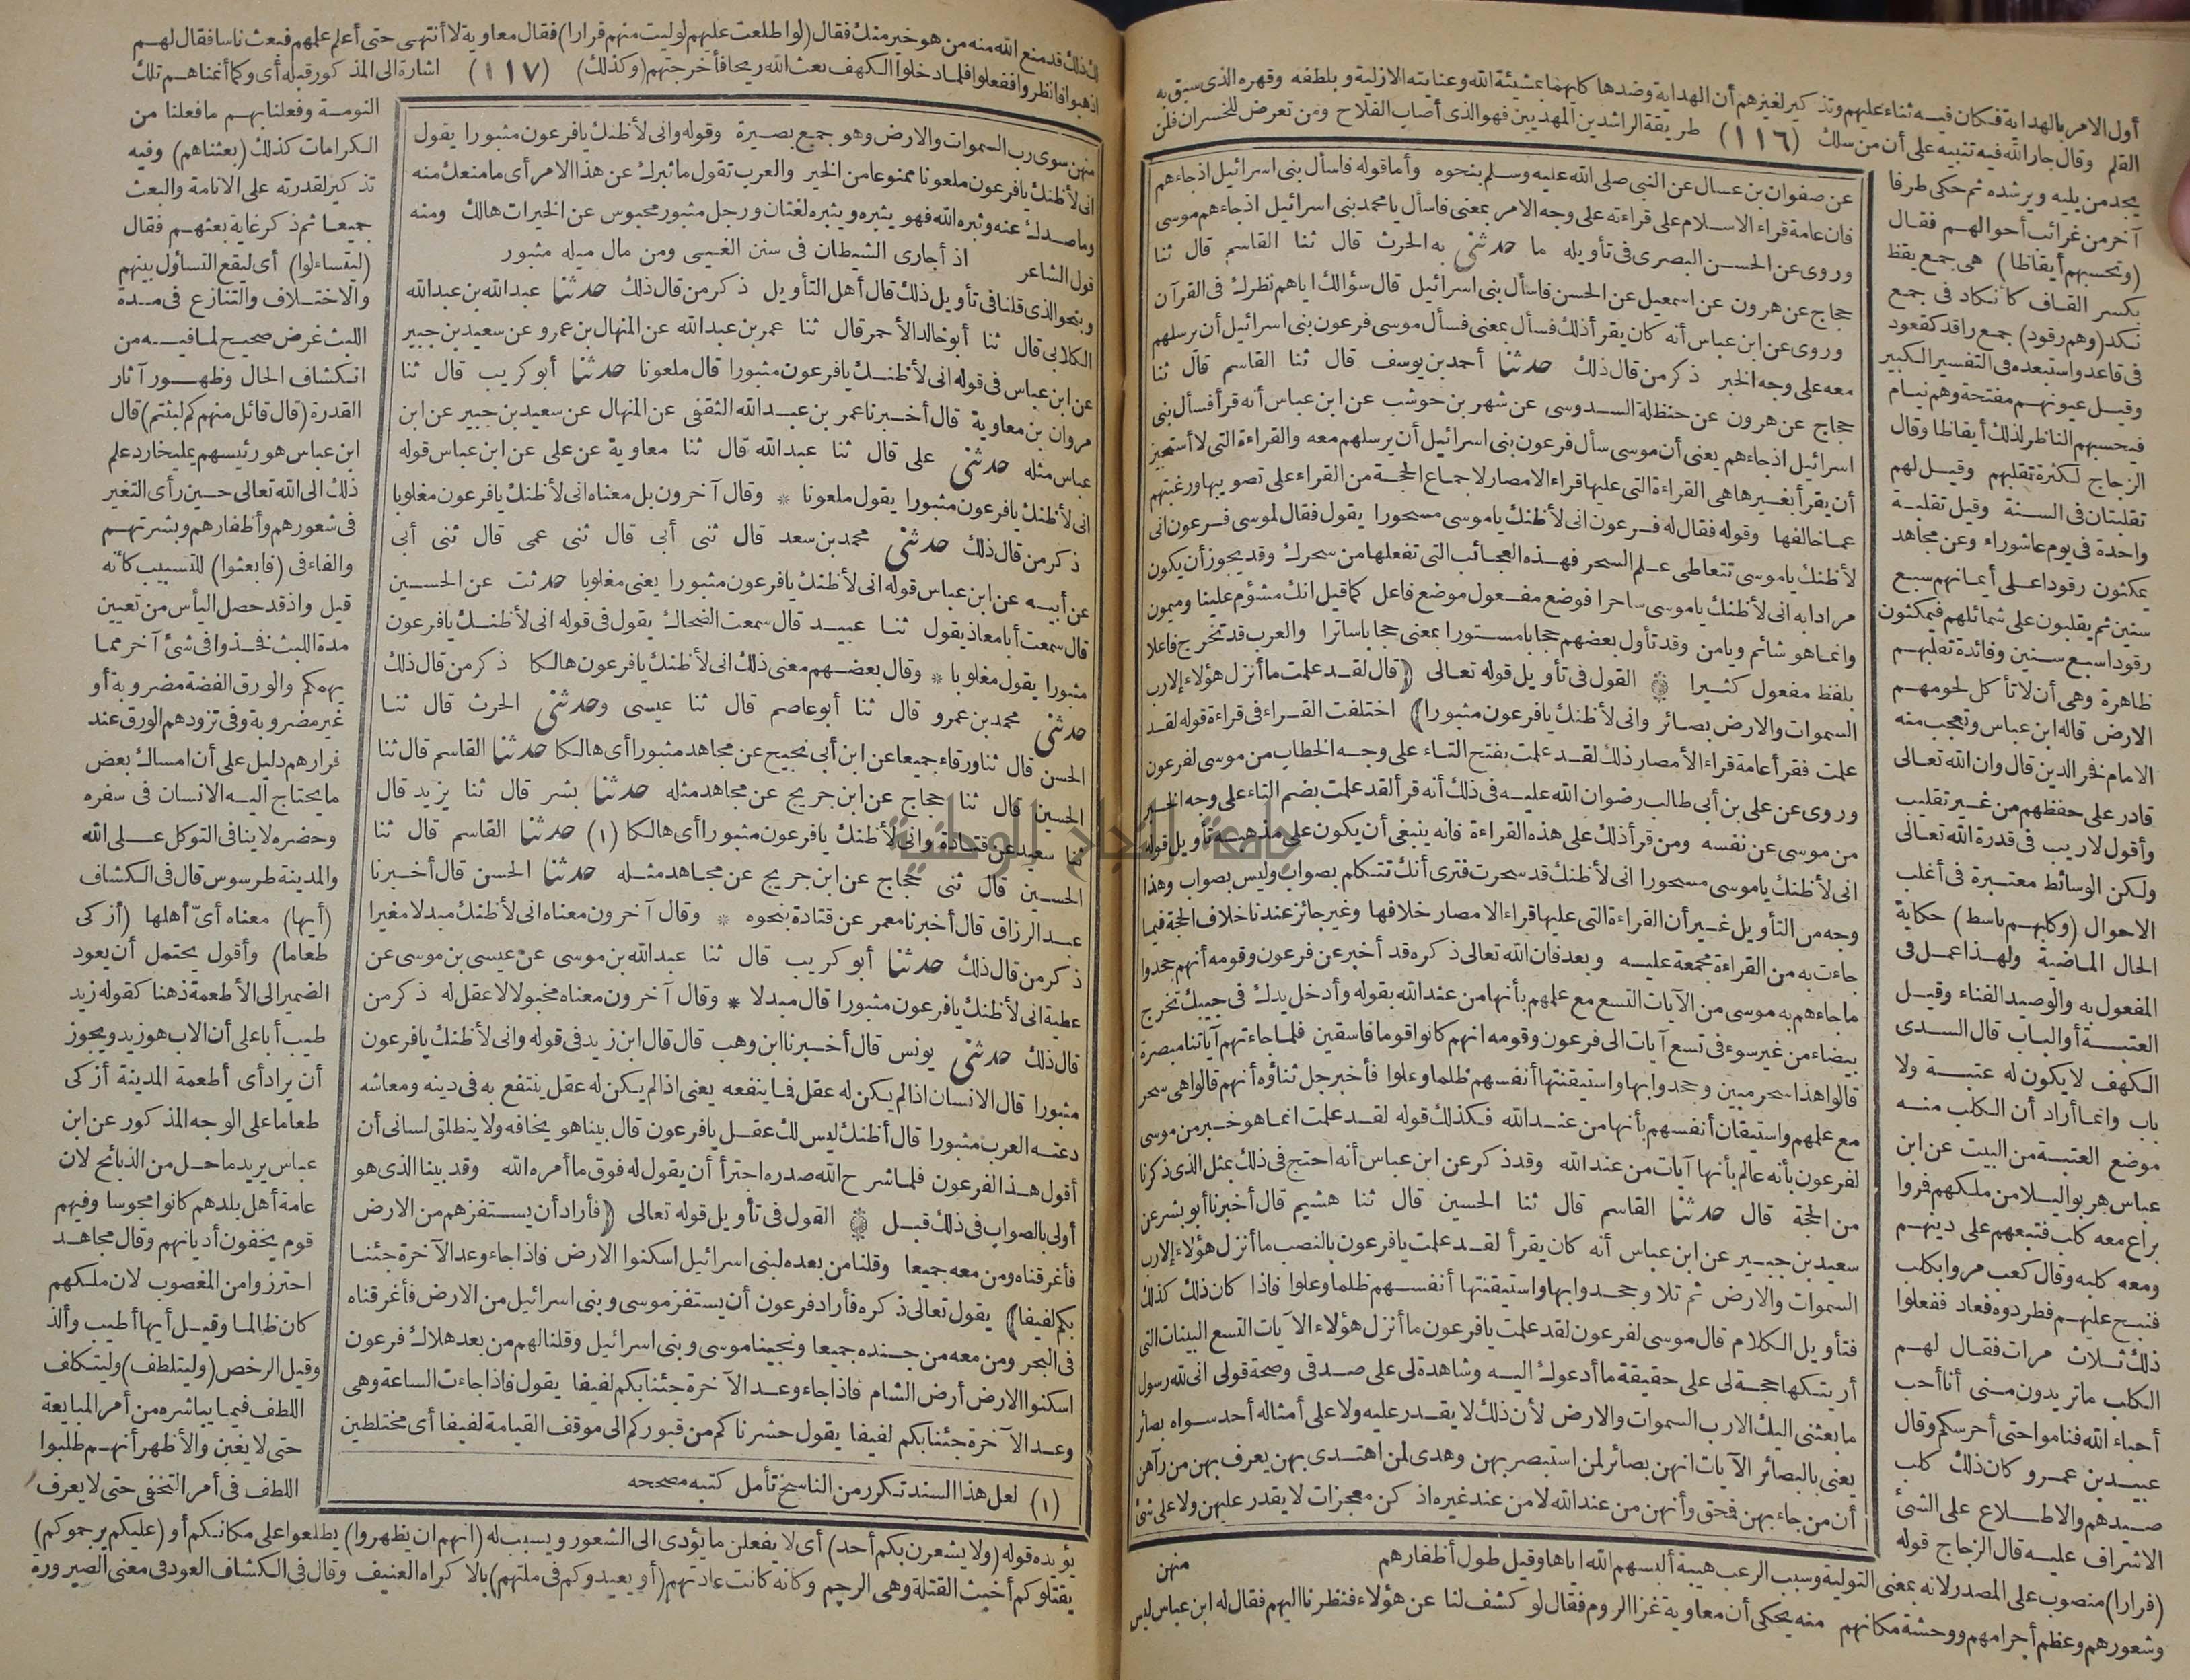 أول الامر بالهداية فكان فيه ثناء عليهم وتذكير لغيرهم أن الهداية وضدها كليهما بمشيئة الله وعنايته الازلية وبلطفه وقهره الذى سبق به
القلم وقال جار الله فيه تنبيه على أن من سلك (١١٦) طريقة الراشدين المهديين فهو الذى أصاب الفلاح ومن تعرض للخسران فلن
عن صفوان بن عسال عن النبى صلى الله عليه وسلم بنحوه وأما قوله فاسأل بنى اسرائيل اذ جاءهم
فان عامة قراء الاسلام على قراءته على وجه الامر بمعنى فاسأل يا محمد بنى اسرائيل اذ جاءهم موسى
وروى عن الحسن البصرى فى تأويله ما حدثنى به الحرث قال ثنا القاسم قال ثنا
حجاج عن هرون عن اسمعيل عن الحسن فاسأل بنى اسرائيل قال سؤالك اياهم نظرك فى القرآن
وروى عن ابن عباس أنه كان يقرأ ذلك فسأل بمعنى فسأل موسى فرعون بنى اسرائيل أن يرسلهم
معه على وجه الخبر ذكر من قال ذلك حدثنا أحمد بن يوسف قال ثنا القاسم قال ثنا
حجاج عن هرون عن حنظلة السدوسى عن شهر بن حوشب عن ابن عباس أنه قرأ فسأل بنى
اسرائيل اذ جاءهم يعنى أن موسى سأل فرعون بنى اسرائيل أن يرسلهم معه والقراءة التى لا أستجيز
أن يقرأ بغيرها هى القراءة التى عليها قراء الامصار لاجماع الحجة من القراء على تصويبها ورغبتهم
عما خالفها وقوله فقال له فرعون انى لأظنك ياموسى مسحورا يقول فقال لموسى فرعون انى
لأظنك ياموسى تتعاطى علم السحر فهذه العجائب التى تفعلها من سحرك وقد يجوز أن يكون
مرادا به انى لأظنك ياموسى ساحرا فوضع مفعول موضع فاعل كما قيل انك مشؤم علينا وميمون
وانما هو شائم ويامن وقد تأول بعضهم حجابا مستورا بمعنى حجابا ساترا والعرب قد تخرج فاعلا
بلفظ مفعول كثيرا القول فى تأويل قوله تعالى (قال لقد علمت ما أنزل هؤلاء إلا رب
السموات والارض بصائر وانى لأظنك يافرعون مثبورا) اختلفت القراء فى قراءة قوله لقد
علمت فقرأ عامة قراء الأمصار ذلك لقد علمت بفتح التاء على وجه الخطاب من موسى لفرعون
وروى عن على بن أبى طالب رضوان الله عليه فى ذلك أنه قرأ لقد علمت بضم التاء على وجه الخبر
من موسى عن نفسه ومن قرأ ذلك على هذه القراءة فانه ينبغى أن يكون على مذهبه تأويل قوله
انى لأظنك ياموسى مسحورا انى لأظنك قد سحرت فترى أنك تتكلم بصواب وليس بصواب وهذا
وجه من التأويل غير أن القراءة التى عليها قراء الامصار خلافها وغير جائز عندنا خلاف الحجة فيما
جاءت به من القراءة مجمعة عليه وبعد فان الله تعالى ذكره قد أخبر عن فرعون وقومه أنهم جحدوا
ما جاءهم به موسى من الآيات التسع مع علمهم بأنها من عند الله بقوله وأدخل يدك فى جيبك تخرج
بيضاء من غير سوء فى تسع آيات الى فرعون وقومه انهم كانوا قوما فاسقين فلما جاءتهم آياتنا مبصرة
قالوا هذا سحر مبين وجحدوا بها واستيقنتها أنفسهم ظلما وعلوا فأخبر جل ثناؤه أنهم قالوا هى سحر
مع علمهم واستيقان أنفسهم بأنها من عند الله فكذلك قوله لقد علمت انما هو خبر من موسى
لفرعون بأنه عالم بأنها آيات من عند الله وقد ذكر عن ابن عباس أنه احتج فى ذلك بمثل الذى ذكرنا
من الحجة قال حدثنا القاسم قال ثنا الحسين قال ثنا هشيم قال أخبرنا أبو بشر عن
سعيد بن جبير عن ابن عباس أنه كان يقرأ لقد علمت يافرعون بالنصب ما أنزل هؤلاء إلا رب
السموات والارض ثم تلا وجحدوا بها واستيقنتها أنفسهم ظلما وعلوا فاذا كان ذلك كذلك
فتأويل الكلام قال موسى لفرعون لقد علمت يافرعون ما أنزل هؤلاء الآيات التسع البينات التى
أريتكها حجة لى على حقيقة ما أدعوك اليه وشاهدة لى على صدقى وصحة قولى انى لله رسول
ما بعثنى اليك الا رب السموات والارض لأن ذلك لا يقدر عليه ولا على أمثاله أحد سواه بصائر
يعنى بالبصائر الآيات انهن بصائر لمن استبصر بهن وهدى لمن اهتدى بهن يعرف بهن من رآهن
أن من جاء بهن فحق وأنهن من عند الله لا من عند غيره اذ كن معجزات لا يقدر عليهن ولا على شئ
منهن
يجد من يليه ويرشده ثم حكى طرفا
آخر من غرائب أحوالهم فقال
(وتحسبهم أيقاظا) هى جمع يقظ
بكسر القاف كانكاد فى جمع
نكد (وهم رقود) جمع راقد كقعود
فى قاعد واستبعده فى التفسير الكبير
وقيل عيونهم مفتحة وهم نيام
فيحسبهم الناظر لذلك أيقاظا وقال
الزجاج لكثرة تقلبهم وقيل لهم
تقلبتان فى السنة وقيل تقلبة
واحدة فى يوم عاشوراء وعن مجاهد
يمكثون رقودا على أيمانهم سبع
سنين ثم يقلبون على شمائلهم فيمكثون
رقودا سبع سنين وفائدة تقلبهم
ظاهرة وهى أن لا تأكل لحومهم
الارض قاله ابن عباس وتعجب منه
الامام فخر الدين قال وان الله تعالى
قادر على حفظهم من غير تقليب
وأقول لا ريب فى قدرة الله تعالى
ولكن الوسائط معتبرة فى أغلب
الاحوال (وكلبهم باسط) حكاية
الحال الماضية ولهذا عمل فى
المفعول به والوصيد الفناء وقيل
العتبة أو الباب قال السدى
الكهف لا يكون له عتبة ولا
باب وانما أراد أن الكلب منه
موضع العتبة من البيت عن ابن
عباس هربوا ليلا من ملكهم فمروا
براع معه كلب فتبعهم على دينهم
ومعه كلبه وقال كعب مروا بكلب
فنبح عليهم فطردوه فعاد ففعلوا
ذلك ثلاث مرات فقال لهم
الكلب ما تريدون منى أنا أحب
أحباء الله فناموا حتى أحرسكم وقال
عبيد بن عمرو كان ذلك كلب
صيدهم والاطلاع على الشئ
الاشراف عليه قال الزجاج قوله
(فرارا) منصوب على المصدر لانه بمعنى التولية وسبب الرعب هيبة ألبسهم الله اياها وقيل طول أظفارهم
وشعورهم وعظم أجرامهم ووحشة مكانهم منه يحكى أن معاوية غزا الروم فقال لو كشف لنا عن هؤلاء فنظرنا اليهم فقال له ابن عباس ليس
لك ذلك قد منع الله منه من هو خير منك فقال (لو اطلعت عليهم لوليت منهم فرارا) فقال معاوية لا أنتهى حتى أعلم علمهم فبعث ناسا فقال لهم
اذهبوا فانظروا ففعلوا فلما دخلوا الكهف بعث الله ريحا فأخرجتهم (وكذلك) (١١٧) اشارة الى المذكور قبله أى وكما أنمناهم تلك
منهن سوى رب السموات والارض وهو جمع بصيرة وقوله وانى لأظنك يافرعون مثبورا يقول
انى لأظنك يافرعون ملعونا ممنوعا من الخير والعرب تقول ما ثبرك عن هذا الامر أى ما منعك منه
وما صدك عنه وثبره الله فهو يثبره ويثبره لغتان ورجل مثبور محبوس عن الخيرات هالك ومنه
قول الشاعر اذ أجارى الشيطان فى سنن الغى ومن مال ميله مثبور
وبنحو الذى قلنا فى تأويل ذلك قال أهل التأويل ذكر من قال ذلك حدثنا عبد الله بن عبد الله
الكلابى قال ثنا أبو خالد الأحمر قال ثنا عمر بن عبد الله عن المنهال بن عمرو عن سعيد بن جبير
عن ابن عباس فى قوله انى لأظنك يافرعون مثبورا قال ملعونا حدثنا أبو كريب قال ثنا
مروان بن معاوية قال أخبرنا عمر بن عبد الله الثقفى عن المنهال عن سعيد بن جبير عن ابن
عباس مثله حدثنى على قال ثنا عبد الله قال ثنا معاوية عن على عن ابن عباس قوله
انى لأظنك يافرعون مثبورا يقول ملعونا * وقال آخرون بل معناه انى لأظنك يافرعون مغلوبا
ذكر من قال ذلك حدثنى محمد بن سعد قال ثنى أبى قال ثنى عمى قال ثنى أبى
عن أبيه عن ابن عباس قوله انى لأظنك يافرعون مثبورا يعنى مغلوبا حدثت عن الحسين
قال سمعت أبا معاذ يقول ثنا عبيد قال سمعت الضحاك يقول فى قوله انى لأظنك يافرعون
مثبورا يقول مغلوبا * وقال بعضهم معنى ذلك انى لأظنك يافرعون هالكا ذكر من قال ذلك
حدثنى محمد بن عمرو قال ثنا أبو عاصم قال ثنا عيسى وحدثنى الحرث قال ثنا
الحسن قال ثنا ورقاء جميعا عن ابن أبى نجيح عن مجاهد مثبورا أى هالكا حدثنا القاسم قال ثنا
الحسين قال ثنا حجاج عن ابن جريج عن مجاهد مثله حدثنا بشر قال ثنا يزيد قال
ثنا سعيد عن قتادة وانى لأظنك يافرعون مثبورا أى هالكا (١) حدثنا القاسم قال ثنا
الحسين قال ثنى حجاج عن ابن جريج عن مجاهد مثله حدثنا الحسن قال أخبرنا
عبد الرزاق قال أخبرنا معمر عن قتادة بنحوه * وقال آخرون معناه انى لأظنك مبدلا مغيرا
ذكر من قال ذلك حدثنا أبو كريب قال ثنا عبد الله بن موسى عن عيسى بن موسى عن
عطية انى لأظنك يافرعون مثبورا قال مبدلا * وقال آخرون معناه مخبولا لا عقل له ذكر من
قال ذلك حدثنى يونس قال أخبرنا ابن وهب قال قال ابن زيد فى قوله وانى لأظنك يافرعون
مثبورا قال الانسان اذا لم يكن له عقل فما ينفعه يعنى اذا لم يكن له عقل ينتفع به فى دينه ومعاشه
دعته العرب مثبورا قال أظنك ليس لك عقل يافرعون قال بينا هو يخافه ولا ينطلق لسانى أن
أقول هذا لفرعون فلما شرح الله صدره اجترأ أن يقول له فوق ما أمره الله وقد بينا الذى هو
أولى بالصواب فى ذلك قبل القول فى تأويل قوله تعالى (فأراد أن يستفزهم من الارض
فأغرقناه ومن معه جميعا وقلنا من بعده لبنى اسرائيل اسكنوا الارض فاذا جاء وعد الآخرة جئنا
بكم لفيفا) يقول تعالى ذكره فأراد فرعون أن يستفز موسى وبنى اسرائيل من الارض فأغرقناه
فى البحر ومن معه من جنده جميعا ونجينا موسى وبنى اسرائيل وقلنا لهم من بعد هلاك فرعون
اسكنوا الارض أرض الشام فاذا جاء وعد الآخرة جئنا بكم لفيفا يقول فاذا جاءت الساعة وهى
وعد الآخرة جئنا بكم لفيفا يقول حشرناكم من قبوركم الى موقف القيامة لفيفا أى مختلطين
(١) لعل هذا السند تكرر من الناسخ تأمل كتبه مصححه
النومة وفعلنا بهم ما فعلنا من
الكرامات كذلك (بعثناهم) وفيه
تذكير لقدرته على الانامة والبعث
جميعا ثم ذكر غاية بعثهم فقال
(ليتساءلوا) أى ليقع التساؤل بينهم
والاختلاف والتنازع فى مدة
اللبث غرض صحيح لما فيه من
انكشاف الحال وظهور آثار
القدرة (قال قائل منهم كم لبثتم) قال
ابن عباس هو رئيسهم يمليخا رد علم
ذلك الى الله تعالى حين رأى التغير
فى شعورهم وأظفارهم وبشرتهم
والفاء فى (فابعثوا) للتسبيب كأنه
قيل واذ قد حصل اليأس من تعيين
مدة اللبث فخذوا فى شئ آخر مما
يهمكم والورق الفضة مضروبة أو
غير مضروبة وفى تزودهم الورق عند
فرارهم دليل على أن امساك بعض
ما يحتاج اليه الانسان فى سفره
وحضره لا ينافى التوكل على الله
والمدينة طرسوس قال فى الكشاف
(أيها) معناه أىّ أهلها (أزكى
طعاما) وأقول يحتمل أن يعود
الضمير الى الأطعمة ذهنا كقوله زيد
طيب أبا على أن الاب هو زيد ويجوز
أن يراد أى أطعمة المدينة أزكى
طعاما على الوجه المذكور عن ابن
عباس يريد ما حل من الذبائح لان
عامة أهل بلدهم كانوا مجوسا وفيهم
قوم يخفون أديانهم وقال مجاهد
احترزوا من المغصوب لان ملكهم
كان ظالما وقيل أيها أطيب وألذ
وقيل الرخص (وليتلطف) وليتكلف
اللطف فيما يباشره من أمر المبايعة
حتى لا يغبن والأظهر أنهم طلبوا
اللطف فى أمر التخفى حتى لا يعرف
يؤيده قوله (ولا يشعرن بكم أحد) أى لا يفعلن ما يؤدى الى الشعور ويسبب له (انهم ان يظهروا) يطلعوا على مكانكم أو (عليكم يرجموكم)
يقتلوكم أخبث القتلة وهى الرجم وكأنه كانت عادتهم (أو يعيدوكم فى ملتهم) بالاكراه العنيف وقال فى الكشاف العود فى معنى الصيرورة
جامعة النجاح الوطنية